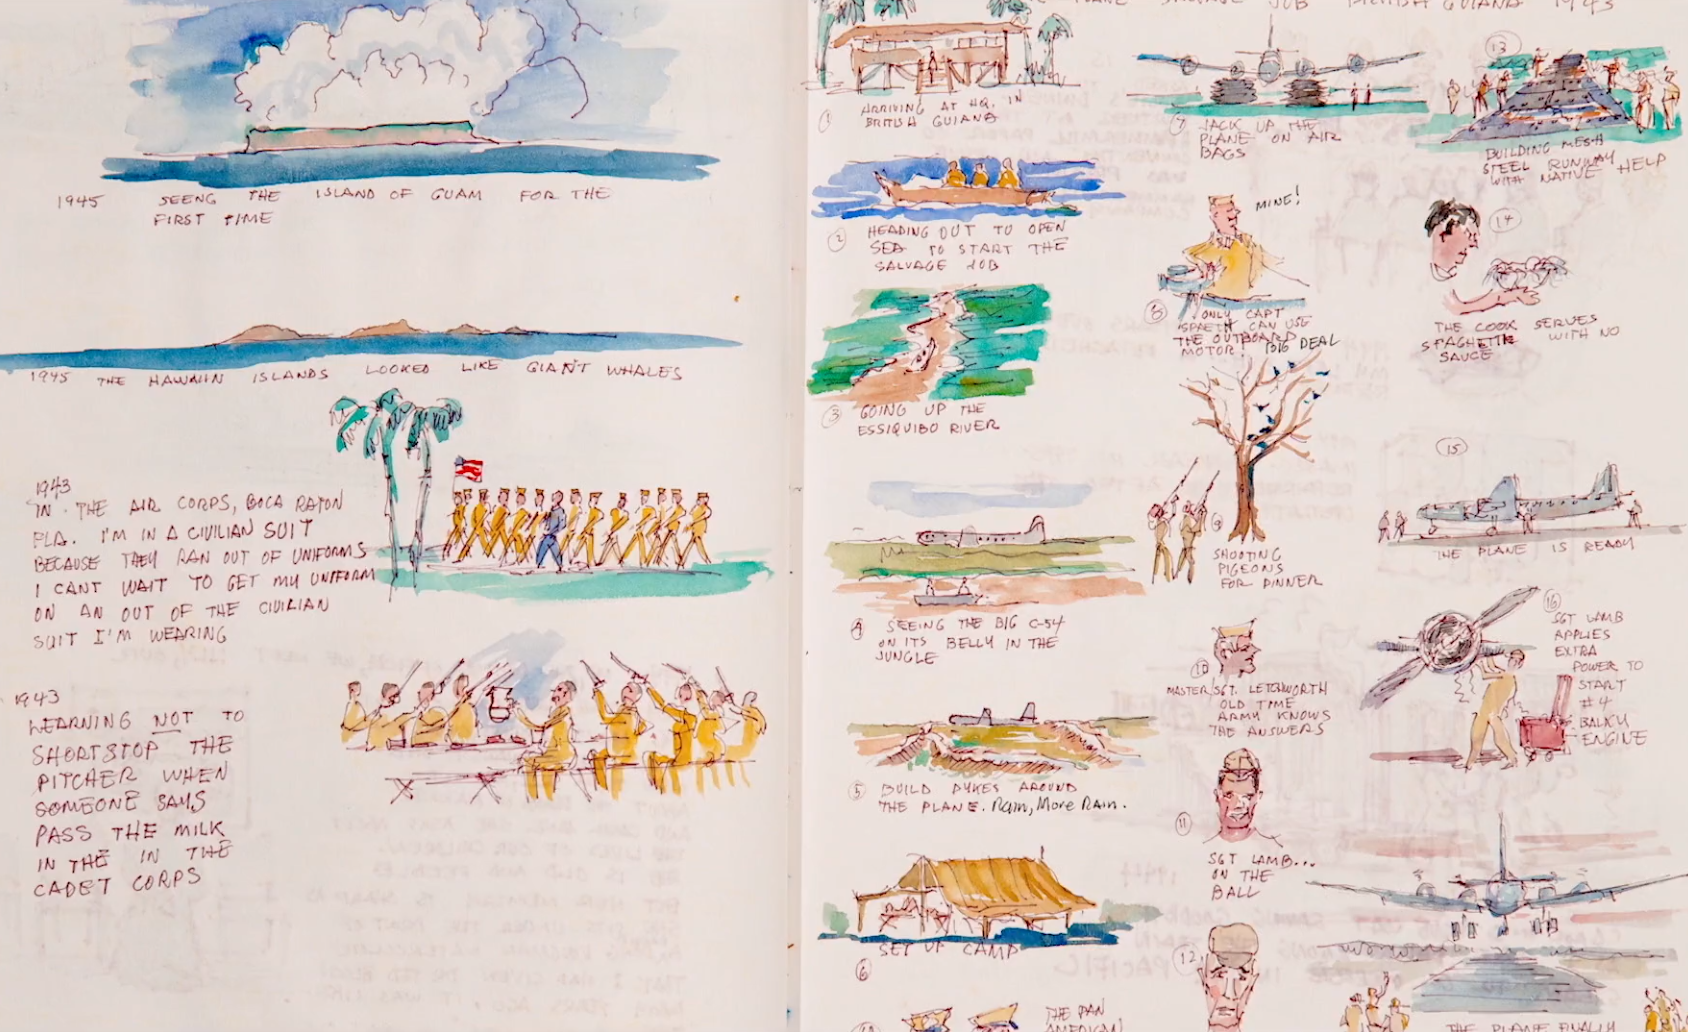 1945 SEENG THE ISLAND OF GUAM FOR THE
FIRST TIME
1945 THE HAWAIIN ISLANDS LOOKED LIKE GIANT WHALES
1943
IN THE AIR CORPS, BOCA RATON
FLA. I'M IN A CIVILIAN SUIT
BECAUSE THEY RAN OUT OF UNIFORMS
I CANT WAIT TO GET MY UNIFORM
ON AN OUT OF THE CIVILIAN
SUIT I'M WEARING
1943
LEARNING NOT TO
SHORTSTOP THE
PITCHER WHEN
SOMEONE SAYS
PASS THE MILK
IN THE IN THE
CADET CORPS
PLANE SALVAGE JOB BRITISH GUIANA 1943
1 ARRIVING AT HQ. IN
BRITISH GUIANA
2 HEADING OUT TO OPEN
SEA TO START THE
SALVAGE JOB
3 GOING UP THE
ESSIQUIBO RIVER
4 SEEING THE BIG C-54
ON ITS BELLY IN THE
JUNGLE
5 BUILD DYKES AROUND
THE PLANE. Rain, More Rain.
6 SET UP CAMP
THE PAN
AMERICAN
7 JACK UP THE
PLANE ON AIR
BAGS
MINE!
8 ONLY CAPT
SPAETH CAN USE
THE OUTBOARD
MOTOR! BIG DEAL
9 SHOOTING
PIGEONS
FOR DINNER
10 MASTER/SGT. LETCHWORTH
OLD TIME
ARMY KNOWS
THE ANSWERS
11 SGT LAMB...
ON THE
BALL
12
13
BUILDING MESH
STEEL RUNWAY
WITH NATIVE HELP
14
THE COOK SERVES
SPAGHETTI WITH NO
SAUCE
15
THE PLANE IS READY
16
SGT LAMB
APPLIES
EXTRA
POWER TO
START
#4
BALKY
ENGINE
THE PLANE FINALLY